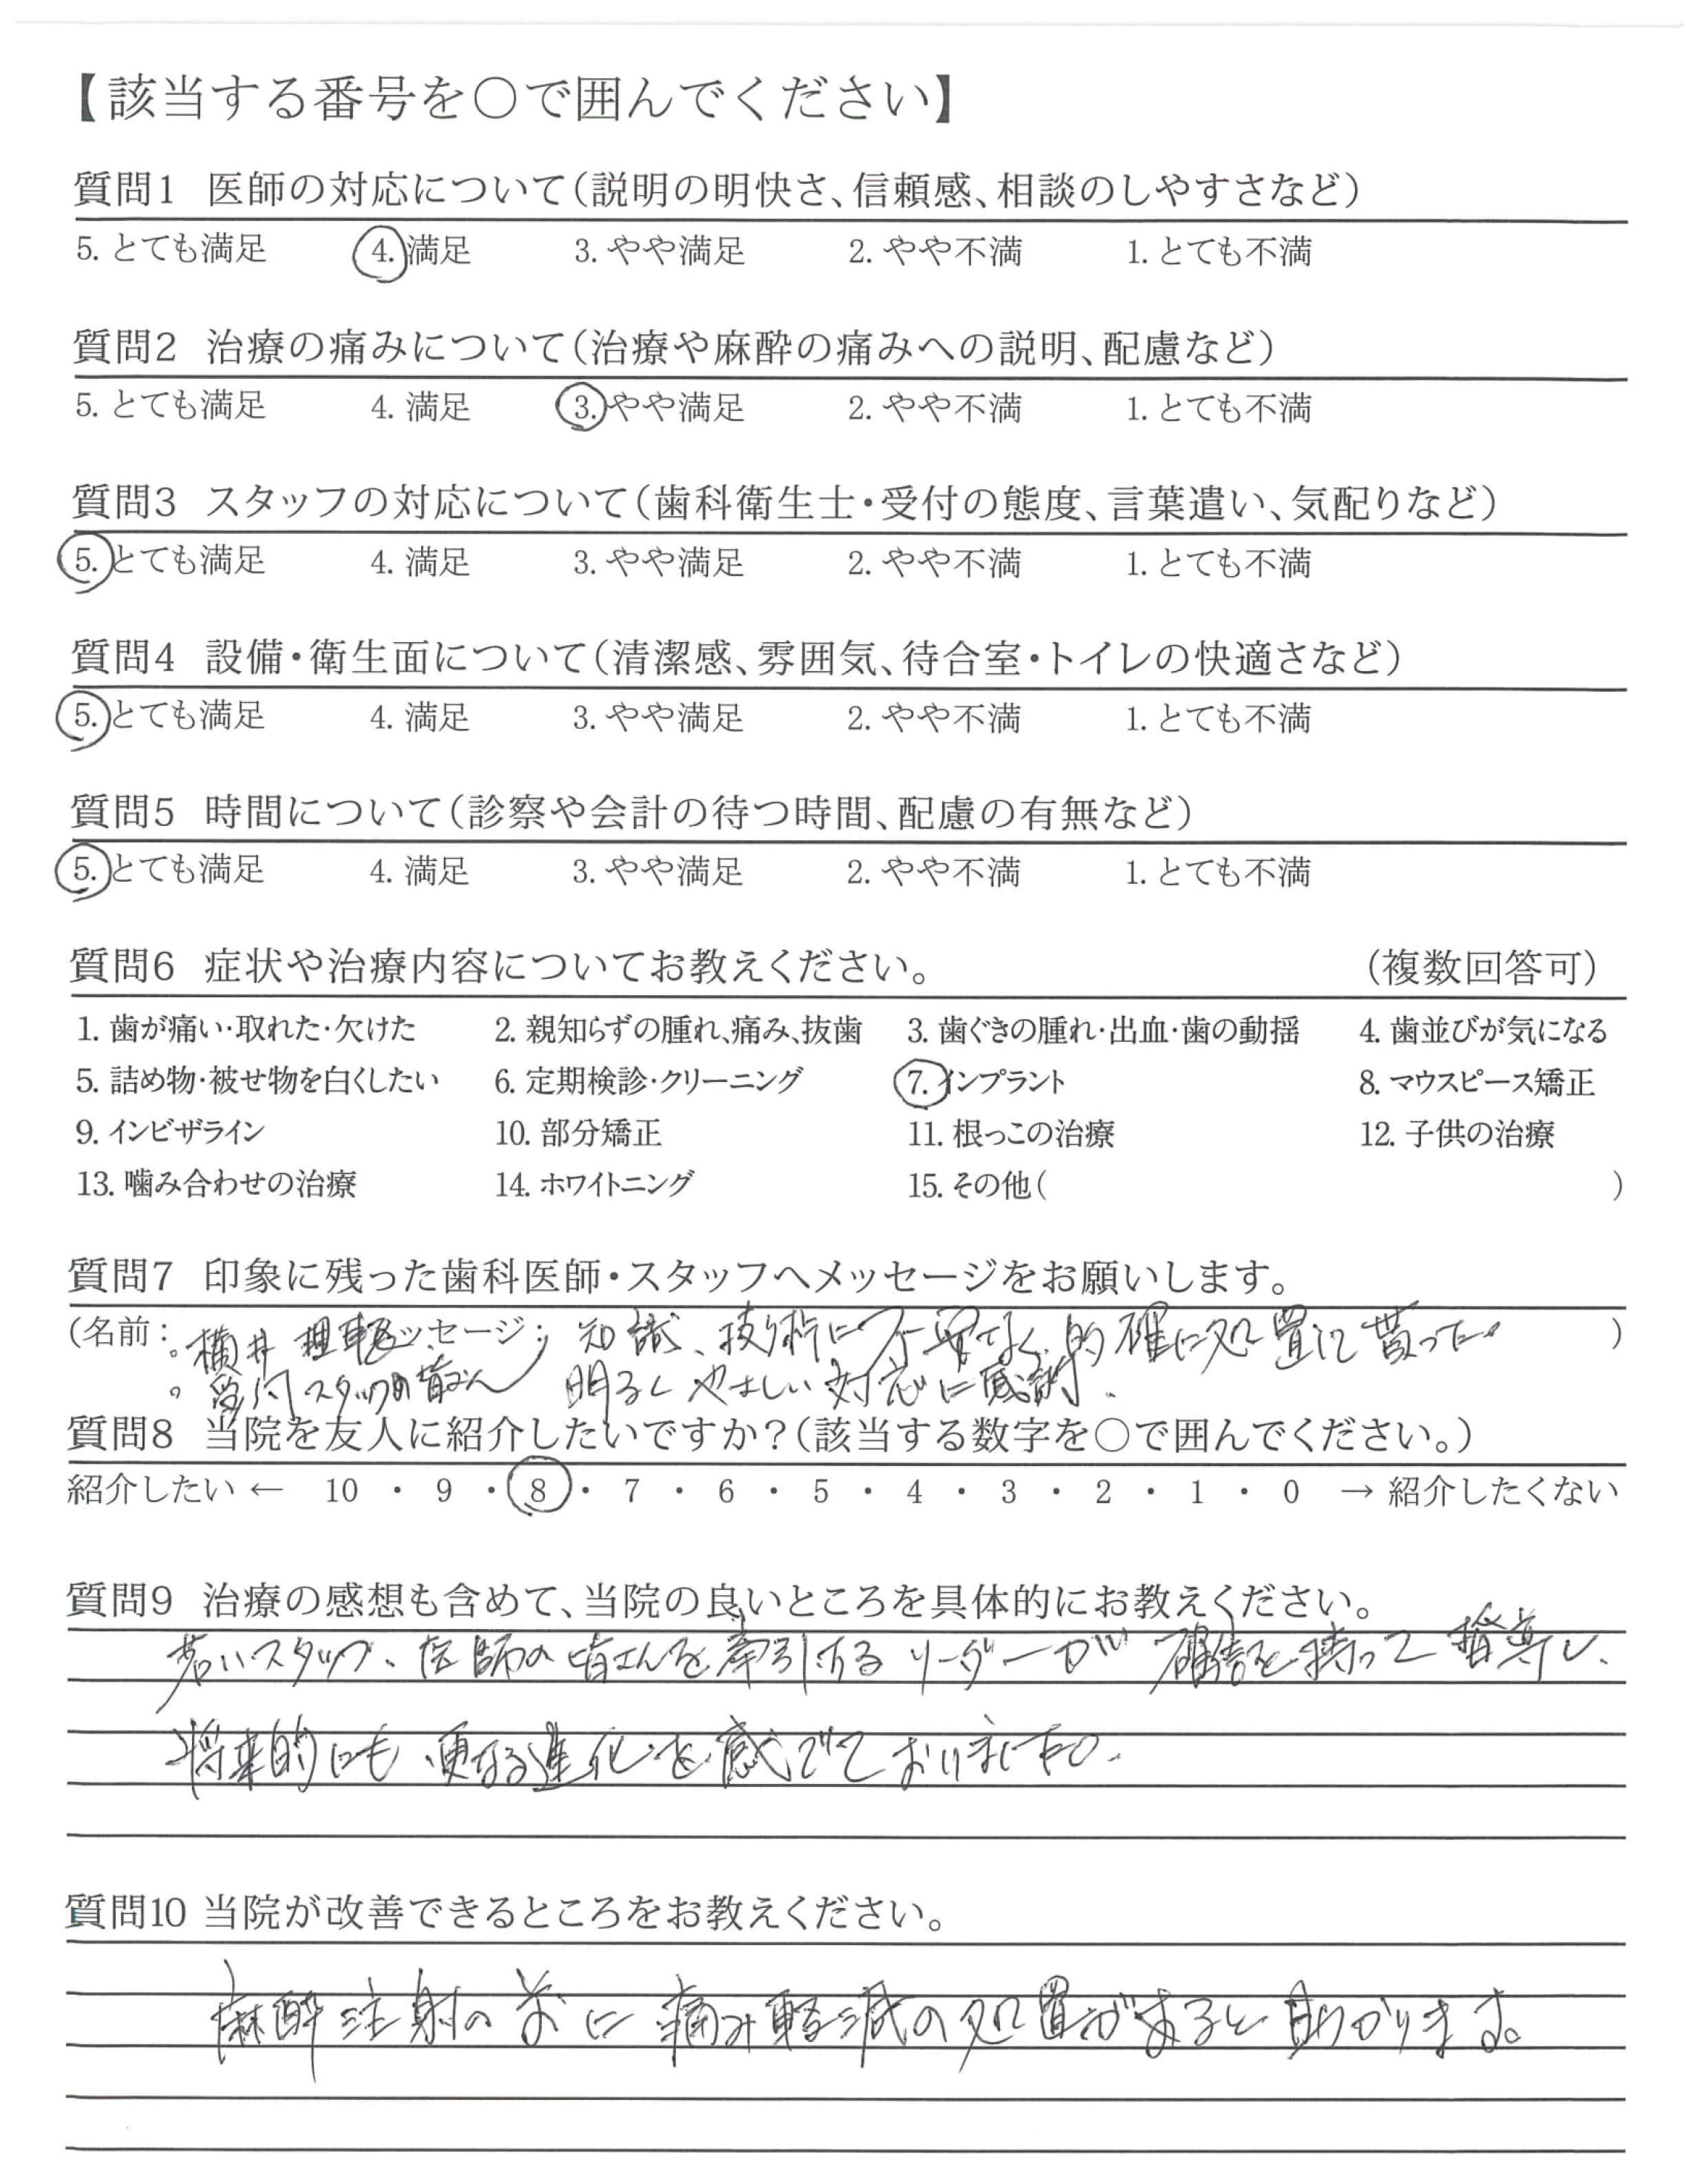 【該当する番号を○で囲んでください】
質問1 医師の対応について(説明の明快さ、信頼感、相談のしやすさなど)
5. とても満足 4. 満足 3. やや満足 2. やや不満 1. とても不満
質問2 治療の痛みについて(治療や麻酔の痛みへの説明、配慮など)
5. とても満足 4. 満足 3. やや満足 2. やや不満 1. とても不満
質問3 スタッフの対応について(歯科衛生士・受付の態度、言葉遣い、気配りなど)
5. とても満足 4. 満足 3. やや満足 2. やや不満 1. とても不満
質問4 設備・衛生面について(清潔感、雰囲気、待合室・トイレの快適さなど)
5. とても満足 4. 満足 3. やや満足 2. やや不満 1. とても不満
質問5 時間について(診察や会計の待つ時間、配慮の有無など)
5. とても満足 4. 満足 3. やや満足 2. やや不満 1. とても不満
質問6 症状や治療内容についてお教えください。 (複数回答可)
1. 歯が痛い・取れた・欠けた 2. 親知らずの腫れ、痛み、抜歯 3. 歯ぐきの腫れ・出血・歯の動揺 4. 歯並びが気になる
5. 詰め物・被せ物を白くしたい 6. 定期検診・クリーニング 7. インプラント 8. マウスピース矯正
9. インビザライン 10. 部分矯正 11. 根っこの治療 12. 子供の治療
13. 噛み合わせの治療 14. ホワイトニング 15. その他( )
質問7 印象に残った歯科医師・スタッフへメッセージをお願いします。
(名前: 。横井 メッセージ; 知識、技術に不安なく、的確に処置して貰った。 )
。受付スタッフの皆さん 明るくやさしい対応に感謝.
質問8 当院を友人に紹介したいですか?(該当する数字を○で囲んでください。)
紹介したい ← 10 ・ 9 ・ 8 ・ 7 ・ 6 ・ 5 ・ 4 ・ 3 ・ 2 ・ 1 ・ 0 → 紹介したくない
質問9 治療の感想も含めて、当院の良いところを具体的にお教えください。
若いスタッフ、医師の皆さんを牽引するリーダーが確信を持って指導し、
将来的にも、更なる進化を感じておりました。
質問10 当院が改善できるところをお教えください。
麻酔注射の前に痛み軽減の処置があると助かります。